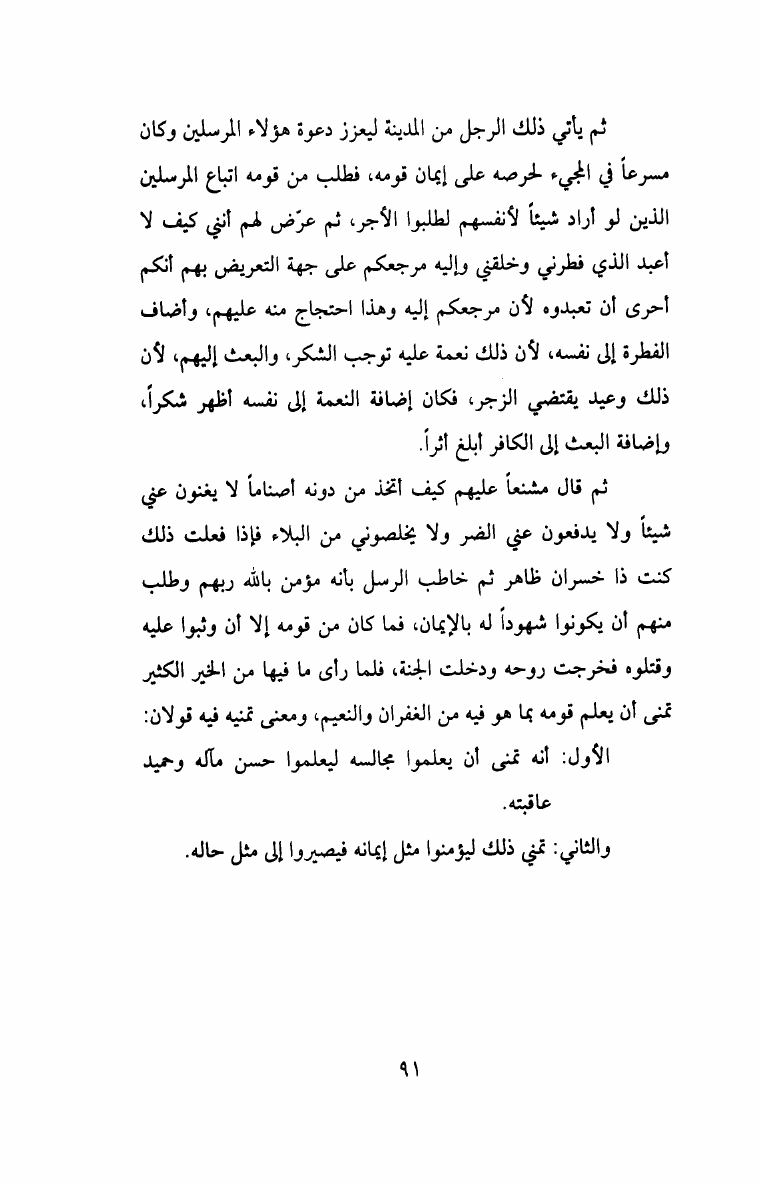 ثم يأتي ذلك الرجل من المدينة ليعزز دعوة هؤلاء المرسلين وكان
مسرعاً في المجيء لحرصه على إيمان قومه، فطلب من قومه اتباع المرسلين
الذين لو أراد شيئاً لأنفسهم لطلبوا الأجر، ثم عرّض لهم أنني كيف لا
أعبد الذي فطرني وخلقني وإليه مرجعكم على جهة التعريض بهم أنكم
أحرى أن تعبدوه لأن مرجعكم إليه وهذا احتجاج منه عليهم، وأضاف
الفطرة إلى نفسه، لأن ذلك نعمة عليه توجب الشكر، والبعث إليهم، لأن
ذلك وعيد يقتضي الزجر، فكان إضافة النعمة إلى نفسه أظهر شكراً،
وإضافة البعث إلى الكافر أبلغ أثراً.
ثم قال مشنعاً عليهم كيف أتخذ من دونه أصناماً لا يغنون عني
شيئاً ولا يدفعون عني الضر ولا يخلصوني من البلاء فإذا فعلت ذلك
كنت ذا خسران ظاهر ثم خاطب الرسل بأنه مؤمن بالله ربهم وطلب
منهم أن يكونوا شهوداً له بالإيمان، فما كان من قومه إلا أن وثبوا عليه
وقتلوه فخرجت روحه ودخلت الجنة، فلما رأى ما فيها من الخير الكثير
تمنى أن يعلم قومه بما هو فيه من الغفران والنعيم، ومعنى تمنيه فيه قولان:
الأول: أنه تمنى أن يعلموا مجالسه ليعلموا حسن مآله وحميد
عاقبته.
والثاني: تمني ذلك ليؤمنوا مثل إيمانه فيصيروا إلى مثل حاله.
٩١